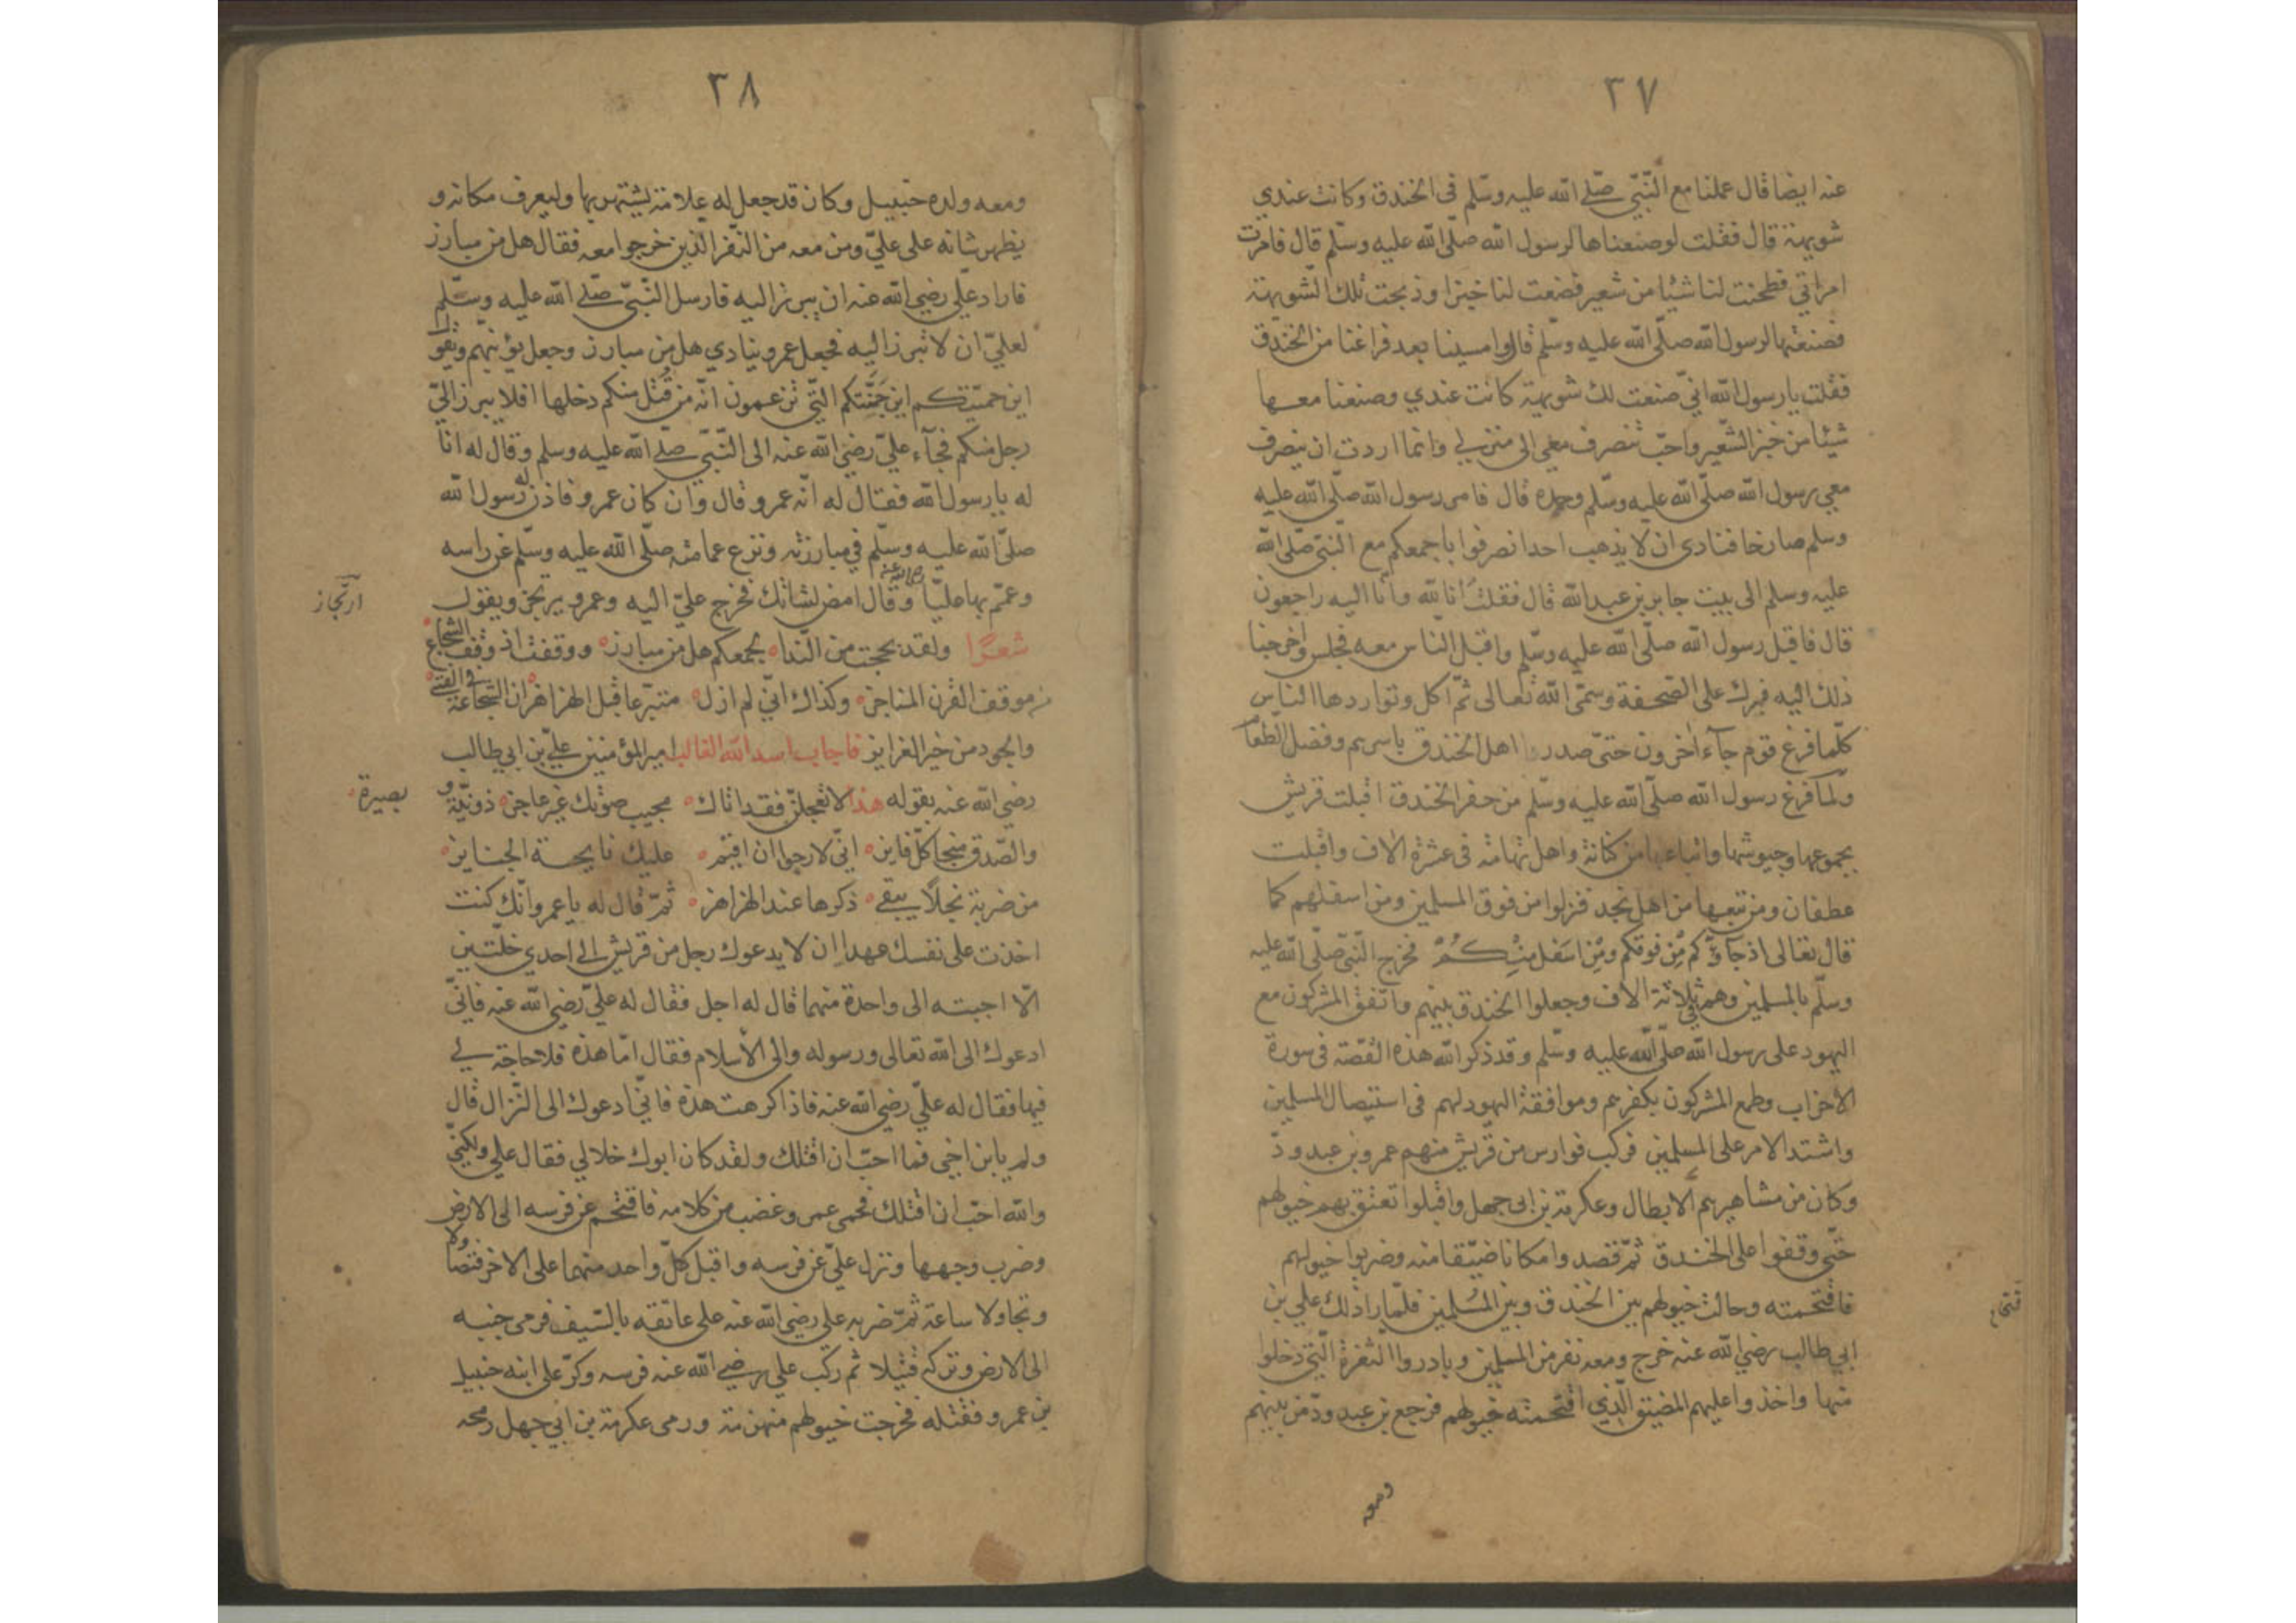 ٣٧
عنه ايضا قال عملنا مع النّبيّ صلّى الله عليه وسلّم فى الخندق وكانت عندي
شويهة قال فقلت لو صنعناها لرسول الله صلّى الله عليه وسلّم قال فامرت
امراتي فطحنت لنا شيئا من شعير فصنعت لنا خبزا وذبحت تلك الشّويهة
فصنعتها لرسول الله صلّى الله عليه وسلّم قال وامسينا بعد فراغنا من الخندق
فقلت يا رسول الله انّي صنعت لك شويهة كانت عندي وصنعنا معها
شيئا من خبز الشّعير واحبّ تنصرف معي الى منزلي وانما اردت ان ينصرف
معي رسول الله صلّى الله عليه وسلّم وحده قال فامر رسول الله صلّى الله عليه
وسلم صارخا فنادى ان لا يذهب احد انصرفوا باجمعكم مع النّبيّ صلّى الله
عليه وسلم الى بيت جابر بن عبد الله قال فقلت انا لله وانّا اليه راجعون
قال فاقبل رسول الله صلّى الله عليه وسلّم واقبل النّاس معه فجلس واخرجنا
ذلك اليه فبرك على الصّحفة وسمّى الله تعالى ثمّ اكل وتواردها النّاس
كلّما فرغ قوم جآء اٰخرون حتىّ صدر اهل الخندق باسرهم وفضل الطّعام
ولمّا فرغ رسول الله صلّى الله عليه وسلّم من حفر الخندق اقبلت قريش
بجموعها وجيوشها واتباعها من كنانة واهل تهامة فى عشرة الاف واقبلت
غطفان ومن تبعها من اهل نجد فنزلوا من فوق المسلمين ومن اسفلهم كما
قال تعالى اذ جآؤكم مِن فوقكم ومِن اسفل مِنْكُمْ فخرج النّبيّ صلّى الله عليه
وسلّم بالمسلمين وهم ثلاثة الاف وجعلوا الخندق بينهم واتّفق المشركون مع
اليهود على رسول الله صلّى الله عليه وسلّم وقد ذكر الله هذه القصّة فى سورة
الاحزاب وطمع المشركون بكفرهم وموافقة اليهود لهم فى استيصال المسلمين
واشتد الامر على المسلمين فركب فوارس من قريش منهم عمرو بن عبد ودّ
وكان من مشاهيرهم الابطال وعكرمة بن ابى جهل واقبلوا تعنق بهم خيولهم
حتّى وقفوا على الخندق ثمّ قصدوا مكانا ضيّقا منه وضربوا خيولهم
فاقتحمته وجالت خيولهم بين الخندق وبين المسلمين فلمّا راذلك علي بن
ابي طالب رضي الله عنه خرج ومعه نفر من المسلمين وبادروا الثغرة الّتي دخلوا
منها واخذوا عليهم المضيق الّذي اقتحمته خيولهم فرجع بن عبد ودّ من بينهم
ومعه
٣٨
ومعه ولده حنبيل وكان قد جعل له علامة يشتهر بها وليعرف مكانه و
يظهر شانه على عليّ ومن معه من النّفر الّذين خرجوا معه فقال هل من مبارز
فاراد عليّ رضي الله عنه ان يبرز اليه فارسل النّبيّ صلّى الله عليه وسلّم
لعليّ ان لا تبرز اليه فجعل عمرو ينادي هل من مبارز وجعل يؤنبّهم ويقول
اين حميّتكم اين جَنَّتكم الّتي تزعمون انّه من قُتل منكم دخلها افلا يبرز اليّ
رجل منكم فجآء عليّ رضي الله عنه الى النّبيّ صلّى الله عليه وسلم وقال له انا
له يا رسول الله فقال له انّه عمرو قال وان كان عمرو فاذن له رسول الله
صلىّ الله عليه وسلّم في مبارزته ونزع عمامته صلّى الله عليه وسلّم عن راسه
وعمّم بها عليّا رضي الله عنه وقال امض لشانك فخرج عليّ اليه وعمرو يرتجز ويقول
ارتجاز
شعرًا ولقد بححت من النّدا بجمعكم هل من مبارز ووقفت اذ وقف الشجاع
موقف القرن المناجز وكذاك انّي لم ازل متبرّعا قبل الهزاهز ان الشجاعة في الفتى
والجود من خير الغرايز فاجاب اسد الله الغالب امير المؤمنين عليّ بن ابي طالب
رضي الله عنه بقوله هذا لا تعجلنّ فقد اتاك مجيب صوتك غير عاجز ذونيّة و
بصيرة
والصّدق منجا كلّ فايز انّي لارجوا ان اقيم عليك نايحة الجنايز
من ضربة نجلاً يبقى ذكرها عند الهزاهز ثمّ قال له يا عمرو انّك كنت
اخذت على نفسك عهدا ان لا يدعوك رجل من قريش الى احدي خلّتين
الّا اجبته الى واحدة منهما قال له اجل فقال له عليّ رضي الله عنه فانّي
ادعوك الى الله تعالى ورسوله والى الأسلام فقال امّا هذه فلا حاجة لي
فيها فقال له عليّ رضي الله عنه فاذا كرهت هذه فانّي ادعوك الى النّزال قال
ولم يابن اخي فما احبّ ان اقتلك ولقد كان ابوك خلا لي فقال علي ولكنّي
والله احبّ ان اقتلك فحمى عمرو وغضب من كلامه فاقتحم عن فرسه الى الارض
وضرب وجهها ونزل عليّ عن فرسه واقبل كلّ واحد منهما على الاخر فتصاولا
وتجاولا ساعة ثمّ ضربه على رضي الله عنه على عاتقه بالسّيف فرمى جنبه
الى الارض وتركه قتيلا ثم ركب علي رضي الله عنه فرسه وكرّ على ابنه حنبيل
بن عمرو فقتله فخرجت خيولهم منهزمة ورمى عكرمة بن ابي جهل رمحه